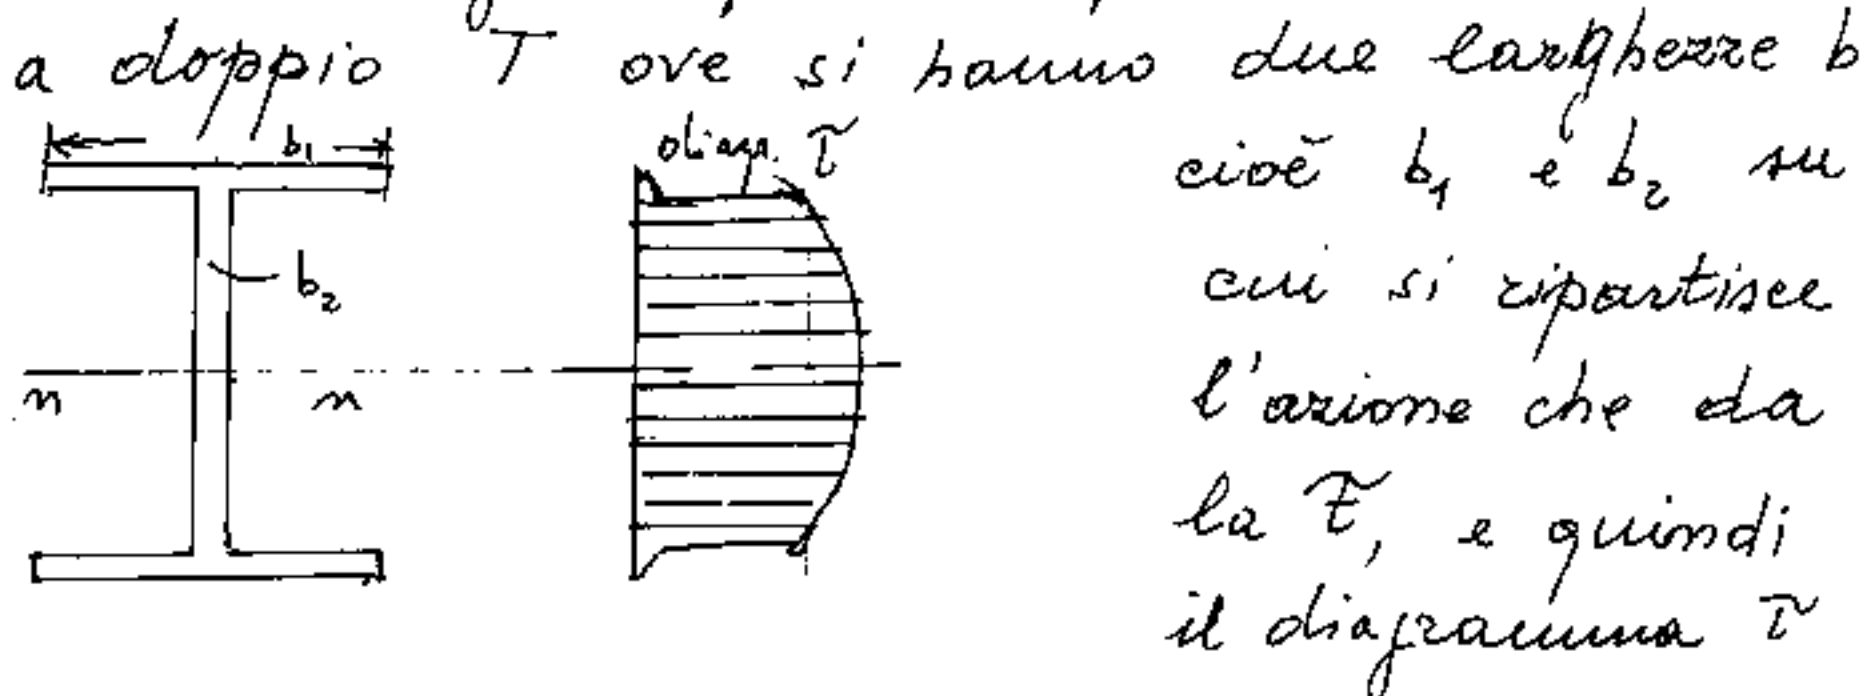 a doppio T ove si hanno due larghezze b
b₁
diagr. τ
cioè b₁ e b₂ su
b₂
cui si ripartisce
n n
l'azione che da
la τ, e quindi
il diagramma τ